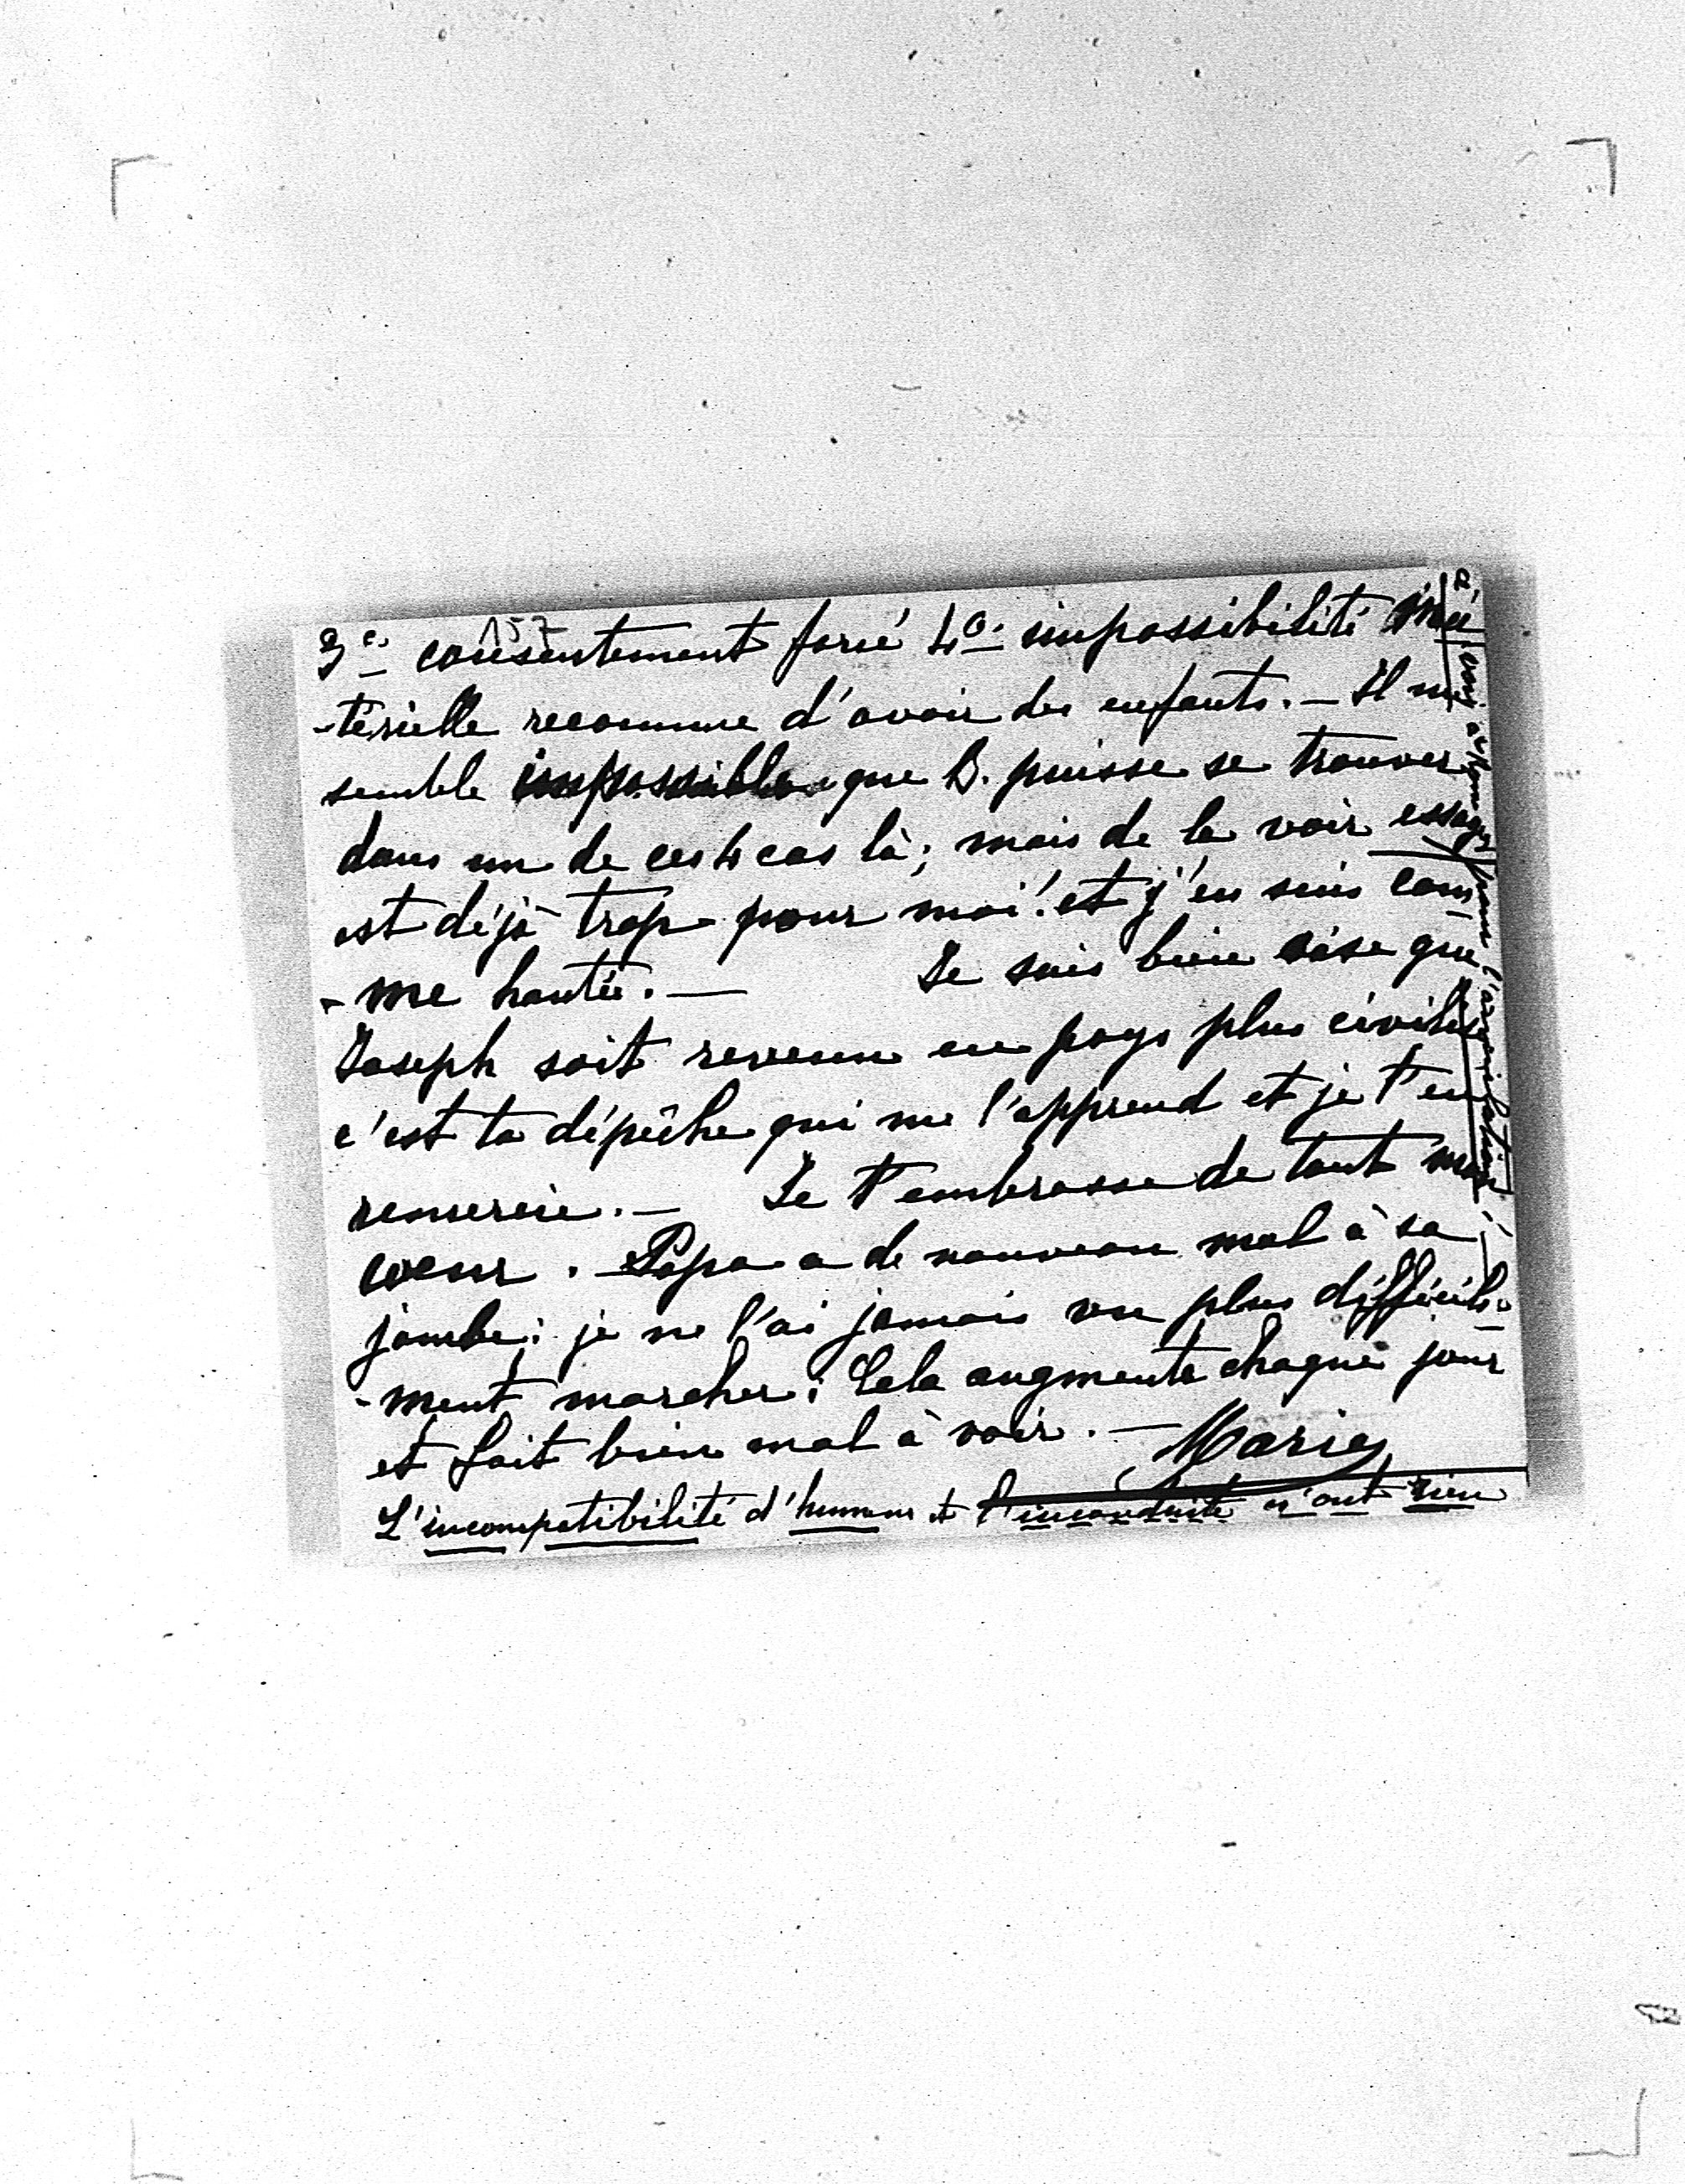 157
3e- consentement forcé 4o- impossibilité ma
-térielle reconnue d'avoir des enfants. - Il me
semble impossible que B. puisse se trouver
dans un de ces 4 cas là; mais de le voir essayer
est déjà trop pour moi! et j'en suis com
-me hantée. - Je suis bien aise que
Joseph soit revenu en pays plus civilisé
c'est ta dépêche qui me l'apprend et je t'en
remercie. - Je t'embrasse de tout mon
coeur. - Papa a de nouveau mal à sa
jambe; je ne l'ai jamais vu plus difficile-
-ment marcher; Cela augmente chaque jour
et fait bien mal à voir. - Marie
L'incompatibilité d'humeur et l'inconduite n'ont rien
à
pour l'annulation